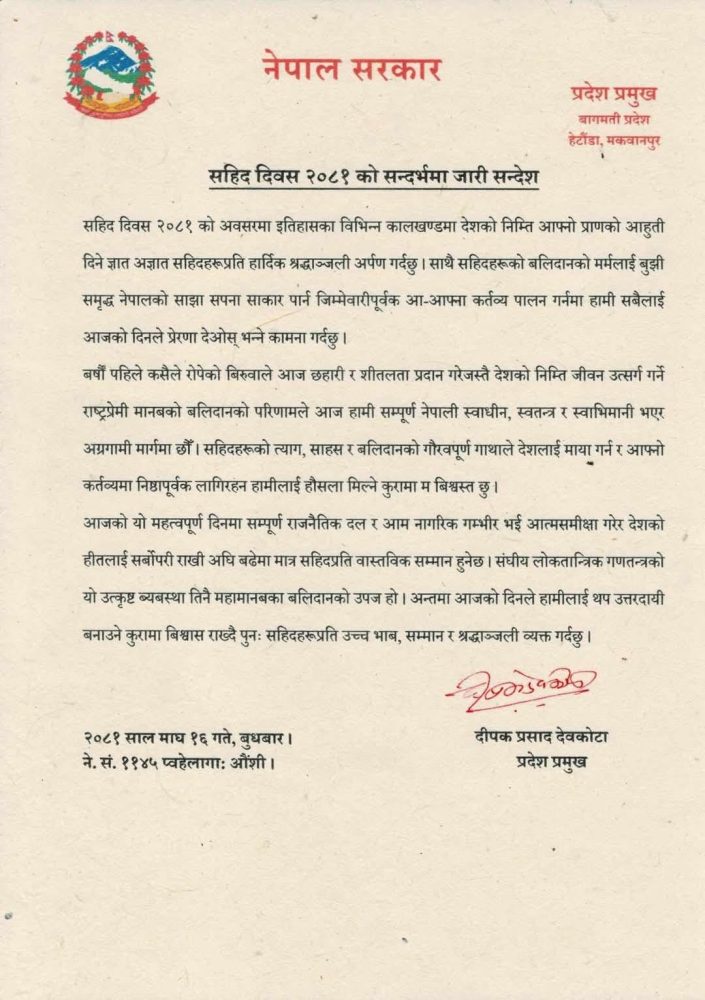 नेपाल सरकार
प्रदेश प्रमुख
बागमती प्रदेश
हेटौंडा, मकवानपुर
सहिद दिवस २०८१ को सन्दर्भमा जारी सन्देश
सहिद दिवस २०८१ को अवसरमा इतिहासका विभिन्न कालखण्डमा देशको निम्ति आफ्नो प्राणको आहुती
दिने ज्ञात अज्ञात सहिदहरूप्रति हार्दिक श्रद्धाञ्जली अर्पण गर्दछु। साथै सहिदहरूको बलिदानको मर्मलाई बुझी
समृद्ध नेपालको साझा सपना साकार पार्न जिम्मेवारीपूर्वक आ-आफ्ना कर्तव्य पालन गर्नमा हामी सबैलाई
आजको दिनले प्रेरणा देओस् भन्ने कामना गर्दछु।
बर्षौं पहिले कसैले रोपेको बिरुवाले आज छहारी र शीतलता प्रदान गरेजस्तै देशको निम्ति जीवन उत्सर्ग गर्ने
राष्ट्रप्रेमी मानबको बलिदानको परिणामले आज हामी सम्पूर्ण नेपाली स्वाधीन, स्वतन्त्र र स्वाभिमानी भएर
अग्रगामी मार्गमा छौँ। सहिदहरूको त्याग, साहस र बलिदानको गौरवपूर्ण गाथाले देशलाई माया गर्न र आफ्नो
कर्तव्यमा निष्ठापूर्वक लागिरहन हामीलाई हौसला मिल्ने कुरामा म बिश्वस्त छु।
आजको यो महत्वपूर्ण दिनमा सम्पूर्ण राजनैतिक दल र आम नागरिक गम्भीर भई आत्मसमीक्षा गरेर देशको
हीतलाई सर्बोपरी राखी अघि बढेमा मात्र सहिदप्रति वास्तविक सम्मान हुनेछ। संघीय लोकतान्त्रिक गणतन्त्रको
यो उत्कृष्ट ब्यबस्था तिनै महामानबका बलिदानको उपज हो। अन्तमा आजको दिनले हामीलाई थप उत्तरदायी
बनाउने कुरामा बिश्वास राख्दै पुनः सहिदहरूप्रति उच्च भाब, सम्मान र श्रद्धाञ्जली व्यक्त गर्दछु।
२०८१ साल माघ १६ गते, बुधबार।
ने. सं. ११४५ प्वहेलागाः औंशी।
दीपक प्रसाद देवकोटा
प्रदेश प्रमुख